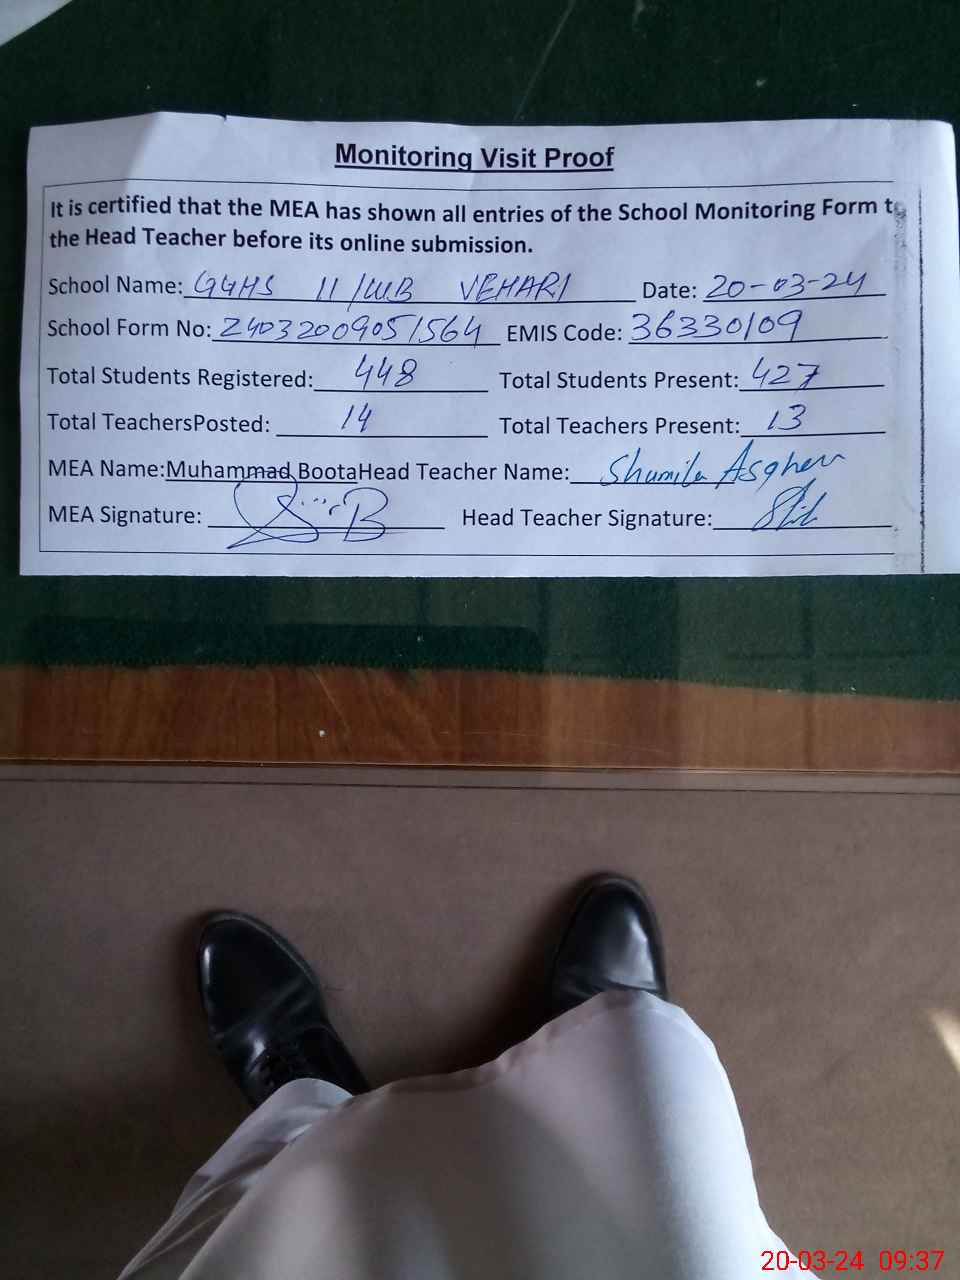 Monitoring Visit Proof
It is certified that the MEA has shown all entries of the School Monitoring Form to
the Head Teacher before its online submission.
School Name: GGHS 11/WB VEHARI Date: 20-03-24
School Form No: 24032009051564 EMIS Code: 36330109
Total Students Registered: 448 Total Students Present: 427
Total TeachersPosted: 14 Total Teachers Present: 13
MEA Name:Muhammad BootaHead Teacher Name: Shumila Asgher
MEA Signature: Head Teacher Signature:
20-03-24 09:37